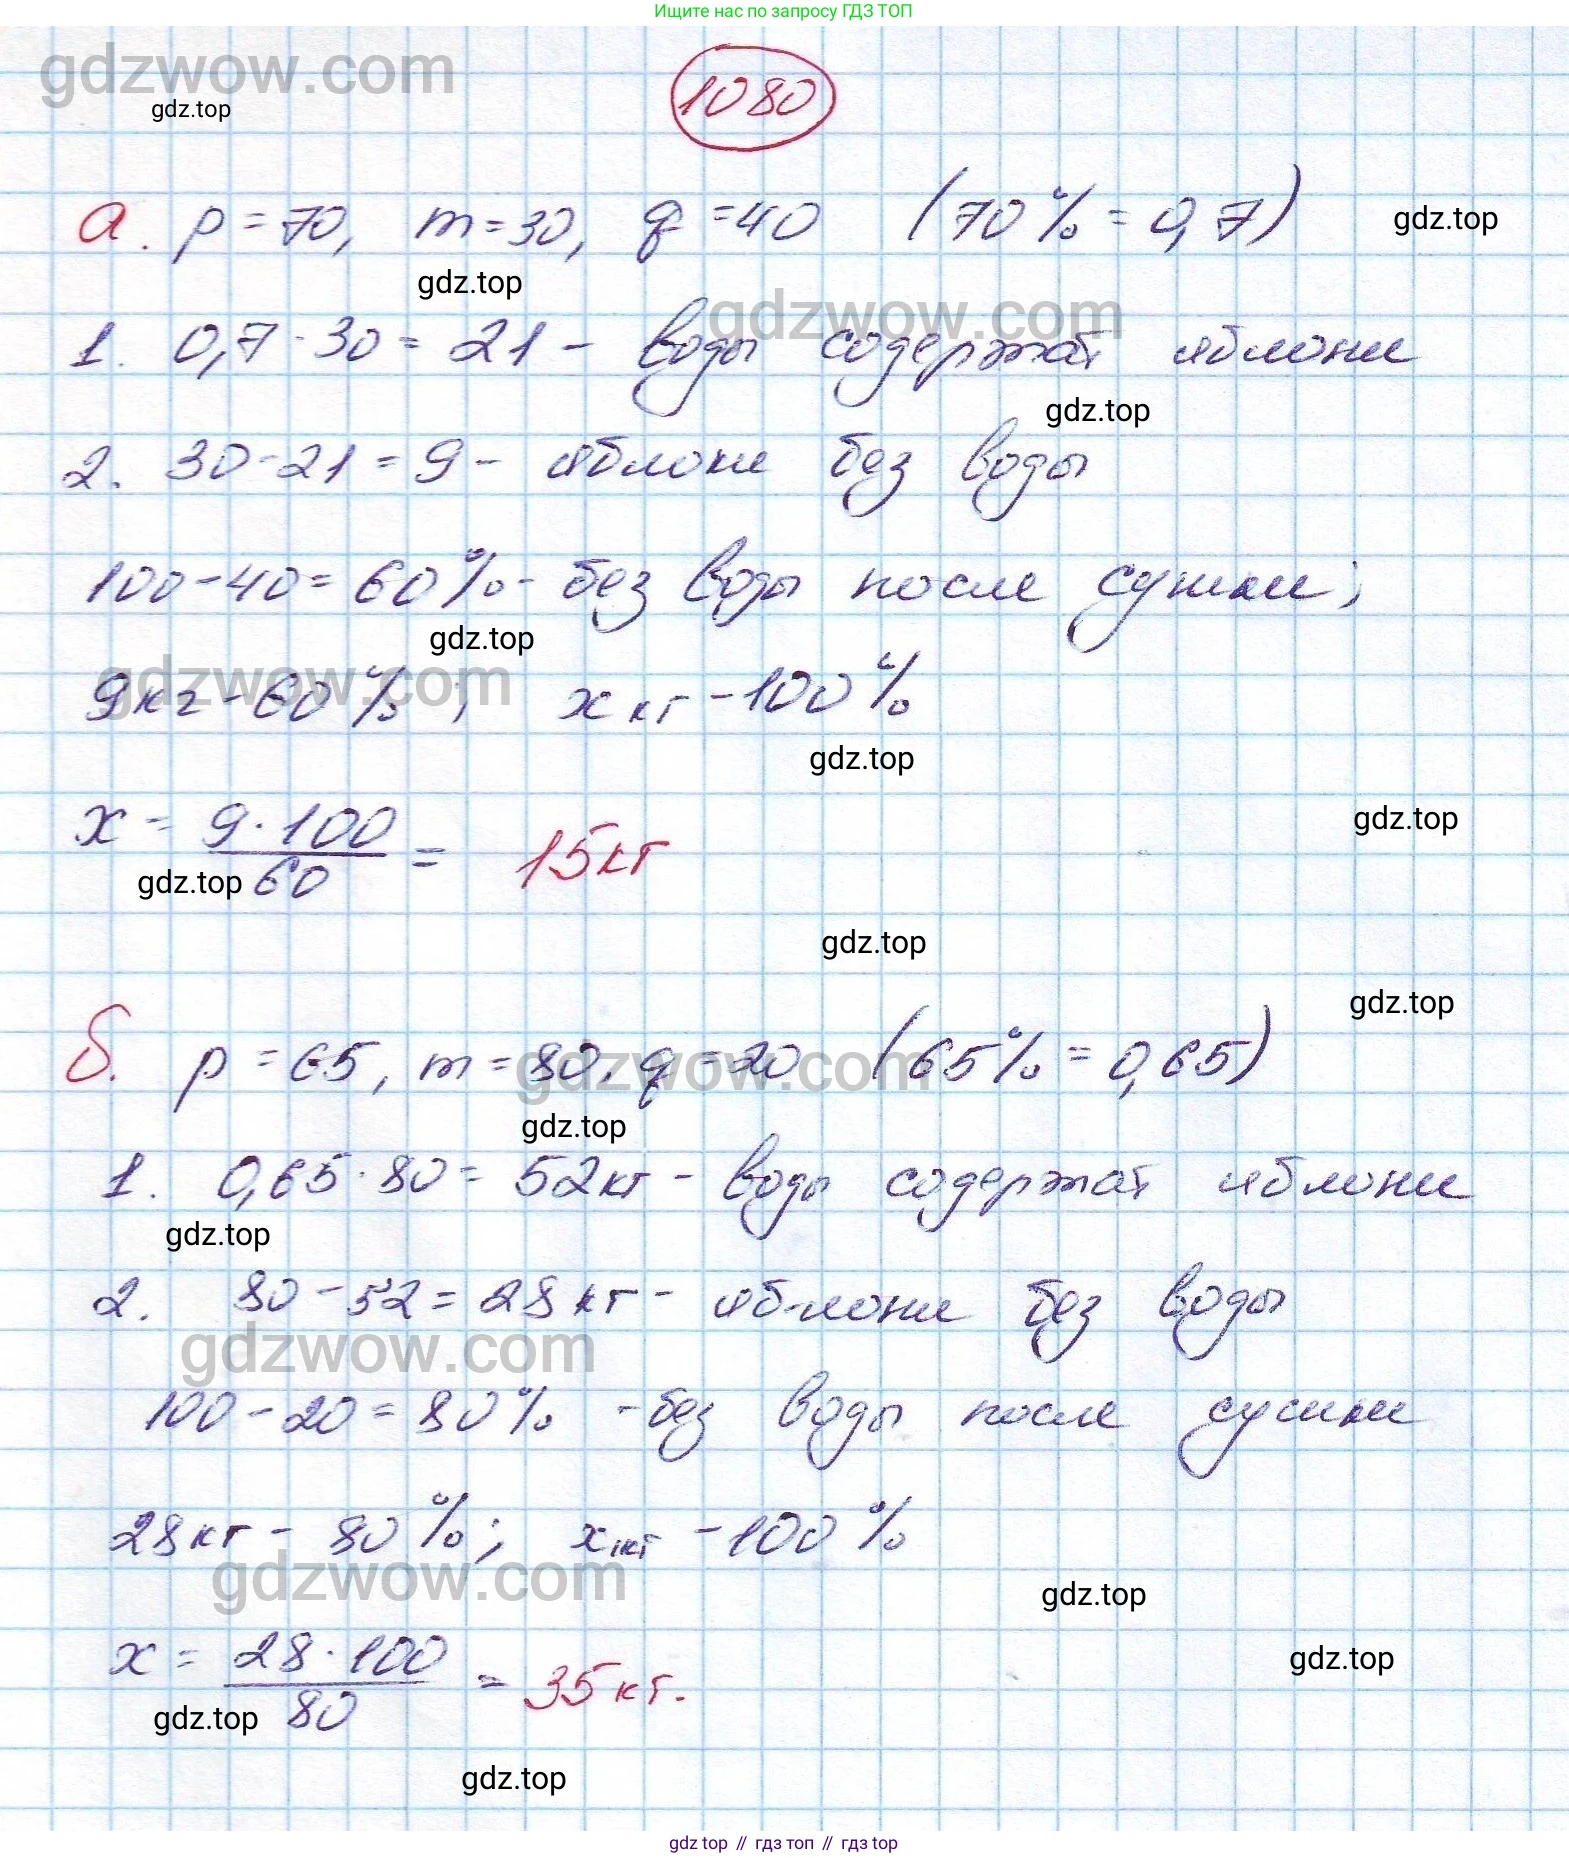 Ищите нас по запросу ГДЗ ТОП
gdzwow.com
gdz.top
1080
а. p = 70, m = 30, q = 40 (70% = 0,7)
gdz.top
gdz.top
gdzwow.com
1. 0,7 · 30 = 21 - воды содержат яблоки
gdz.top
2. 30 - 21 = 9 - яблоки без воды
100 - 40 = 60% - без воды после сушки;
gdz.top
gdzwow.com
9кг - 60%; x кг - 100%
gdz.top
gdz.top
x = 9 · 100 / 60 = 15кг
gdz.top
gdz.top
gdz.top
б. p = 65, m = 80, q = 20 (65% = 0,65)
gdzwow.com
gdz.top
1. 0,65 · 80 = 52кг - воды содержат яблоки
gdz.top
2. 80 - 52 = 28 кг - яблоки без воды
gdzwow.com
100 - 20 = 80% - без воды после сушки
28кг - 80%; x кг - 100%
gdzwow.com
gdz.top
x = 28 · 100 / 80 = 35 кг.
gdz.top
gdz.top
gdz.top
gdz top // гдз топ // гдз top